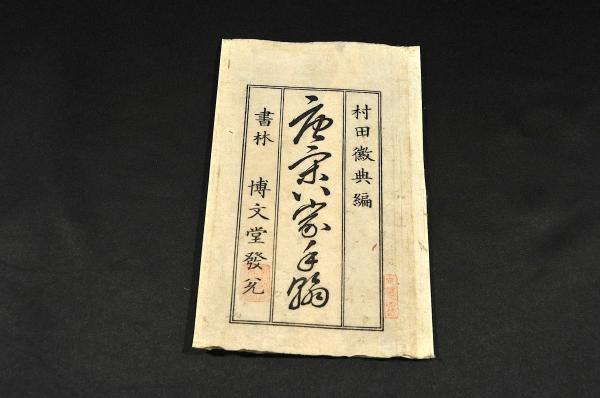 村田徽典編
唐宋八家手翰
書林 博文堂發兌